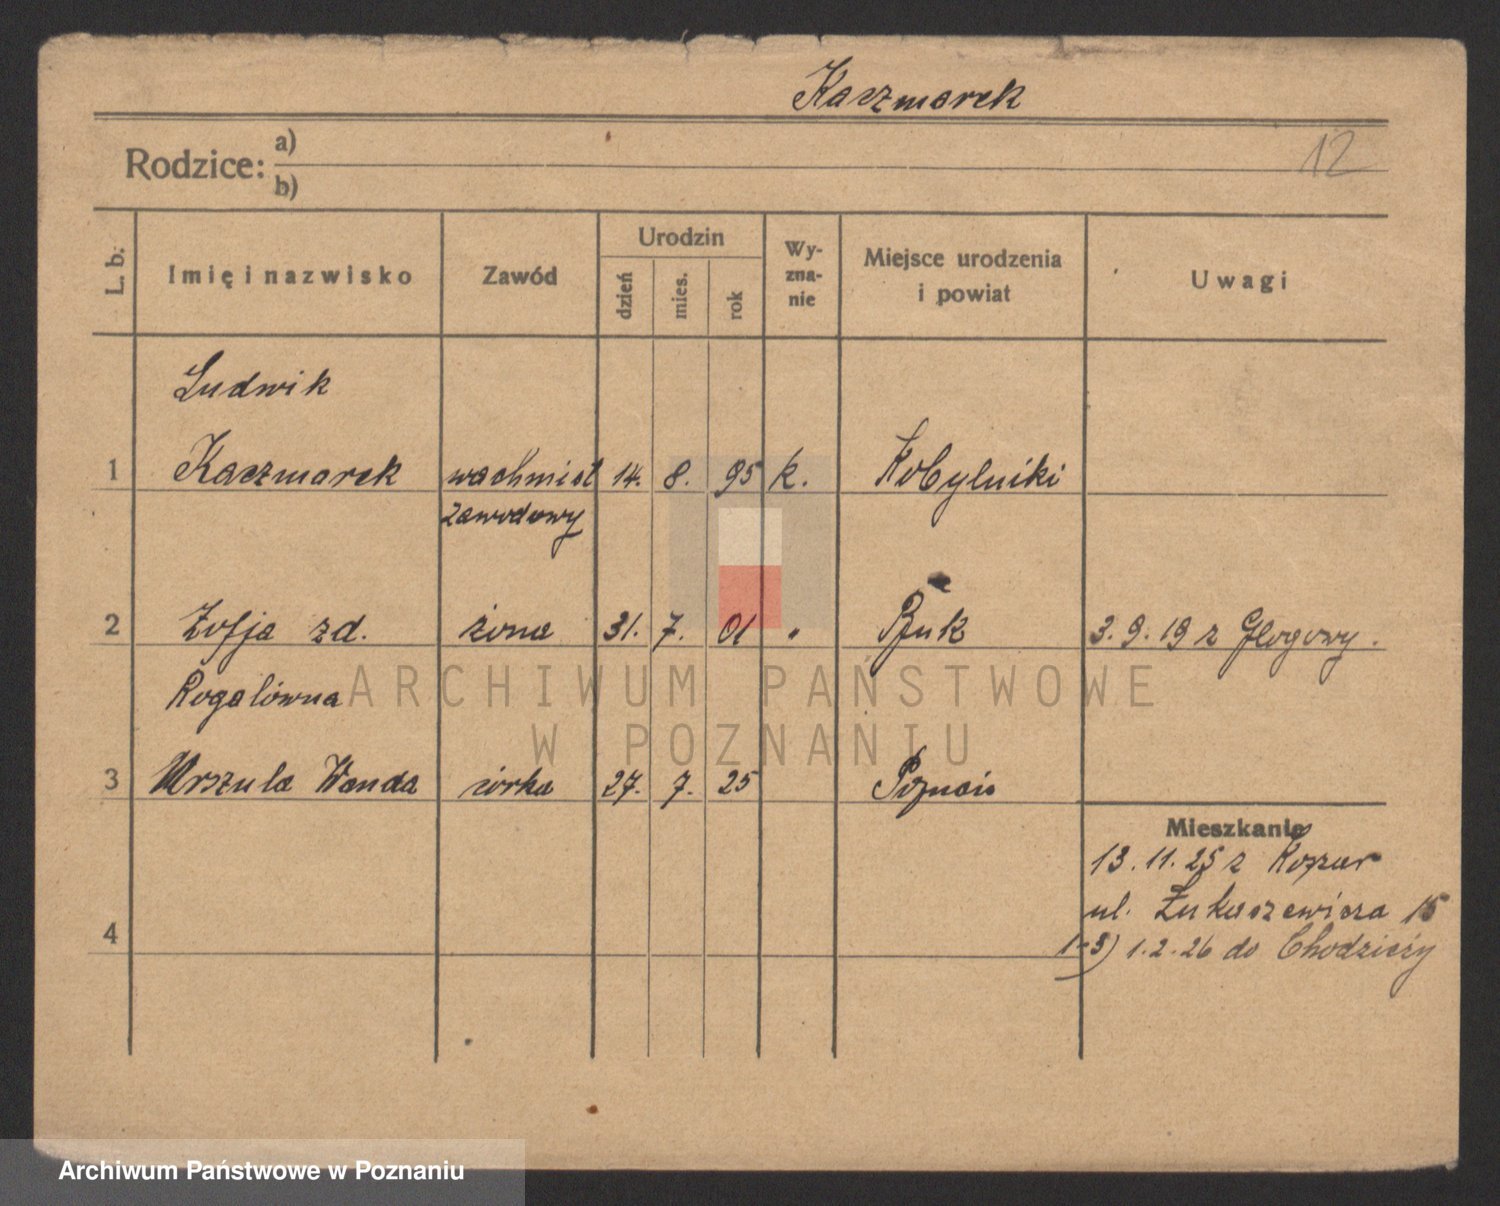 Kaczmarek
Rodzice: a)
b)
12
L. b.
Imię i nazwisko
Zawód
Urodzin
dzień
mies.
rok
Wy-
zna-
nie
Miejsce urodzenia
i powiat
Uwagi
Ludwik
1 Kaczmarek wachmist 14. 8. 95 k. Kobylniki
zawodowy
2 Zofja zd. żona 31. 7. 01 " Buk 3. 9. 19 z Głogowy.
Rogalówna
ARCHIWUM PAŃSTWOWE
W POZNANIU
3 Urszula Wanda córka 27. 7. 25 Poznań
Mieszkanie
13. 11. 25 z
ul. Łukaszewicza 15
4
1-3) 1. 2. 26 do Chodzieży
Archiwum Państwowe w Poznaniu